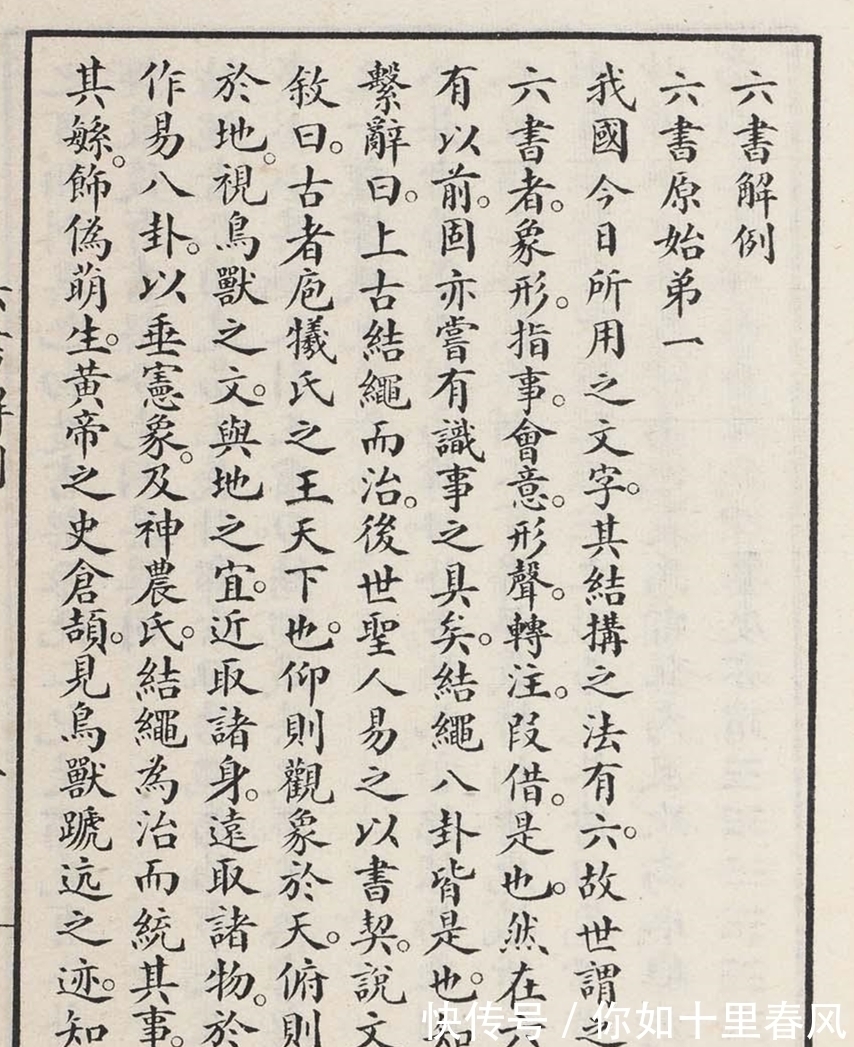 六書解例
六書原始弟一
我國今日所用之文字。其結構之法有六。故世謂之
六書者。象形。指事。會意。形聲。轉注。叚借。是也。然在六
有以前。固亦嘗有識事之具矣。結繩八卦皆是也。
繫辭曰。上古結繩而治。後世聖人易之以書契。說文
敘曰。古者庖犧氏之王天下也。仰則觀象於天。俯則
於地。視鳥獸之文。與地之宜。近取諸身。遠取諸物。於
作易八卦。以垂憲象。及神農氏。結繩為治而統其事。
其緐。飾偽萌生。黃帝之史倉頡。見鳥獸蹏迒之迹。知
快传号/你如十里春风